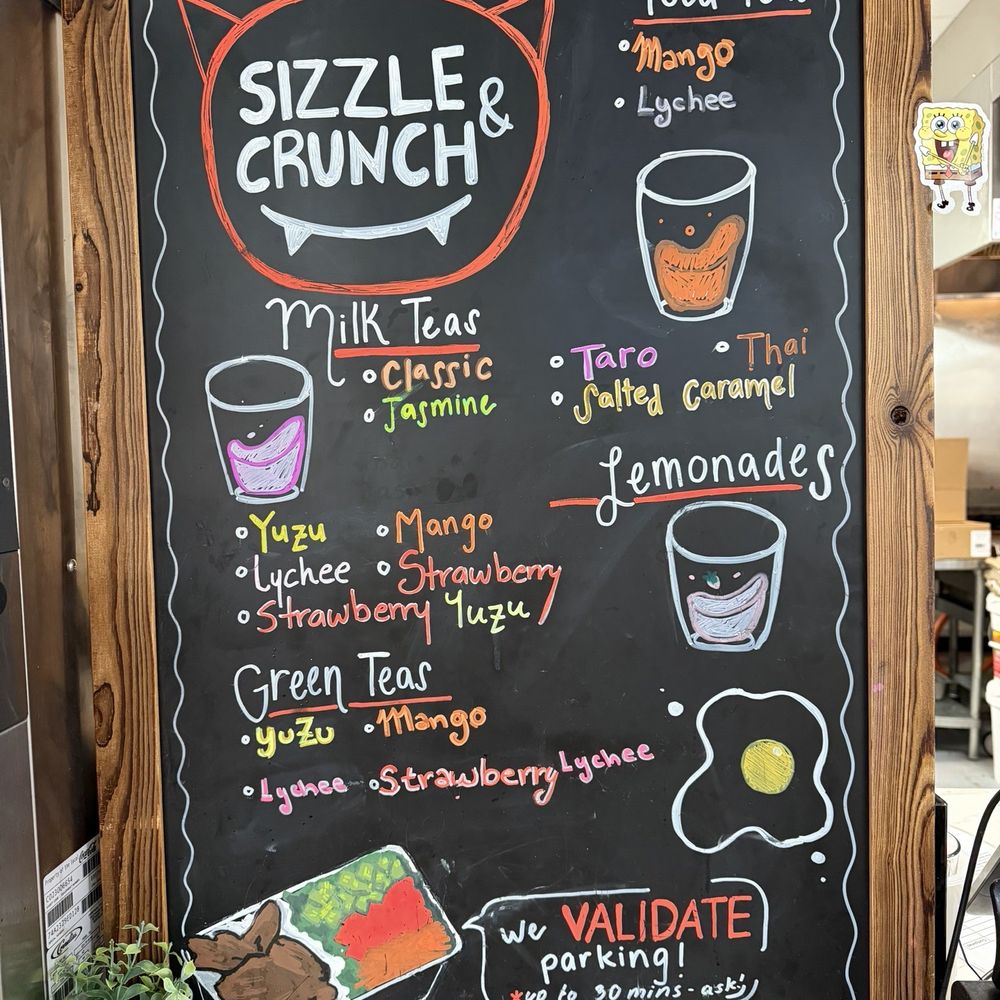 SIZZLE &
CRUNCH
Mango
Lychee
Milk Teas
Classic
Jasmine
Taro
Thai
Salted Caramel
Lemonades
Yuzu
Mango
Lychee
Strawberry
Strawberry Yuzu
Green Teas
yuzu
Mango
Lychee
Strawberry Lychee
we VALIDATE
parking!
*up to 30 mins - ask!